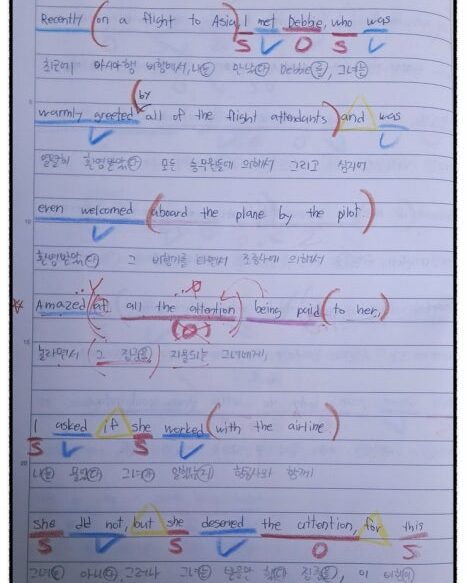 Recently (on a flight to Asia,) I met Debbie, who was
S V O S V
최근에 아시아행 비행에서, 나는 만났다 Debbie를, 그녀는
(by
warmly greeted all of the flight attendants) and was
V V
열렬히 환영받았다 모든 승무원들에 의해서 그리고 심지어
even welcomed (aboard the plane by the pilot.)
V
환영받았다 그 비행기를 타면서 조종사에 의해서
Amazed (at all the attention) being paid (to her,)
놀라면서 (그 집중을) 지불되는 그녀에게,
I asked if she worked (with the airline)
S V S V
나는 물었다 그녀가 일했는지 항공사와 함께
She did not, but she deserved the attention, for this
S V S V O S
그녀는 아니다, 그러나 그녀는 받을만 했다 집중을, 이